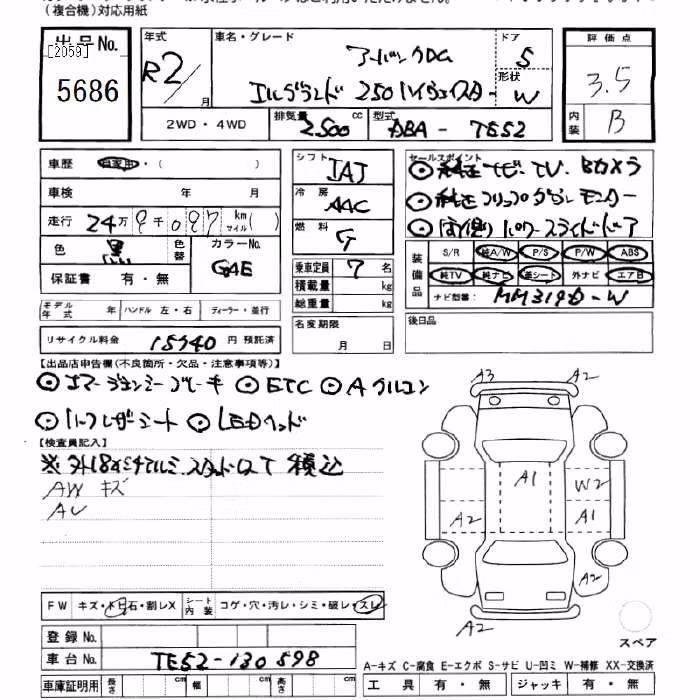 (複合機)対応用紙
出品No.
[2059]
5686
年式 R2/ 月
車名・グレード
アーバンクロム
エルグランド 250 ハイウェイスター
ドア 5
形状 W
評価点
3.5
内装 B
2WD・4WD
排気量 2500 cc
型式 DBA-TE52
車歴 自家用・( )
車検 年 月
走行 24万9千097km マイル( )
色 黒 色替 カラーNo. G4E
保証書 有・無
モデル年式 年 ハンドル 左・右 ディーラー・並行
リサイクル料金 15940 円 預託済
シフト IAT
冷房 AAC
燃料 G
乗車定員 7 名
積載量 kg
総重量 kg
名変期限 月 日
セールスポイント
純正ナビ・TV・Bカメラ
純正フリップダウンモニター
両側パワースライドドア
装備品
S/R 純A/W P/S P/W ABS
純TV 純ナビ 革シート 外ナビ エアB
ナビ型番: MM319D-W
後日品
【出品店申告欄(不良箇所・欠品・注意事項等)】
エマージェンシーブレーキ ETC Aクルコン
ハーフレザーシート LEDヘッド
【検査員記入】
※外18インチアルミ、スタッドレス 積込
AW キズ
FW キズ・トビ石・割レX
シート内装 コゲ・穴・汚レ・シミ・破レ・スレ
登録No.
車台No. TE52-130598
車庫証明用 長さ cm 幅 cm 高さ cm
A3 A2
A1 W2
A2 A1
A2
A2
スペア
A-キズ C-腐食 E-エクボ S-サビ U-凹ミ W-補修 XX-交換済
工具 有・無 ジャッキ 有・無